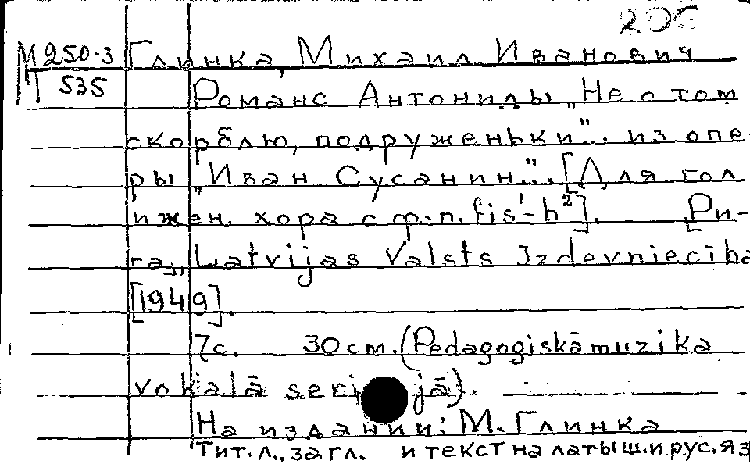 206
М 250-3 Глинка, Михаил Иванович
Т 535 Романс Антониды „Не о том
скорблю, подруженьки"... из опе-
ры „Иван Сусанин". [Для гол.
и жен. хора с ф.-п. fis¹-h²]. [Ри-
га], Latvijas Valsts Izdevniecība
[1949].
7с. 30 см. (Pedagogiskā muzika
vokalā serijā).
На издании: М. Глинка
Тит. л., загл. и текст на латыш. и рус. яз